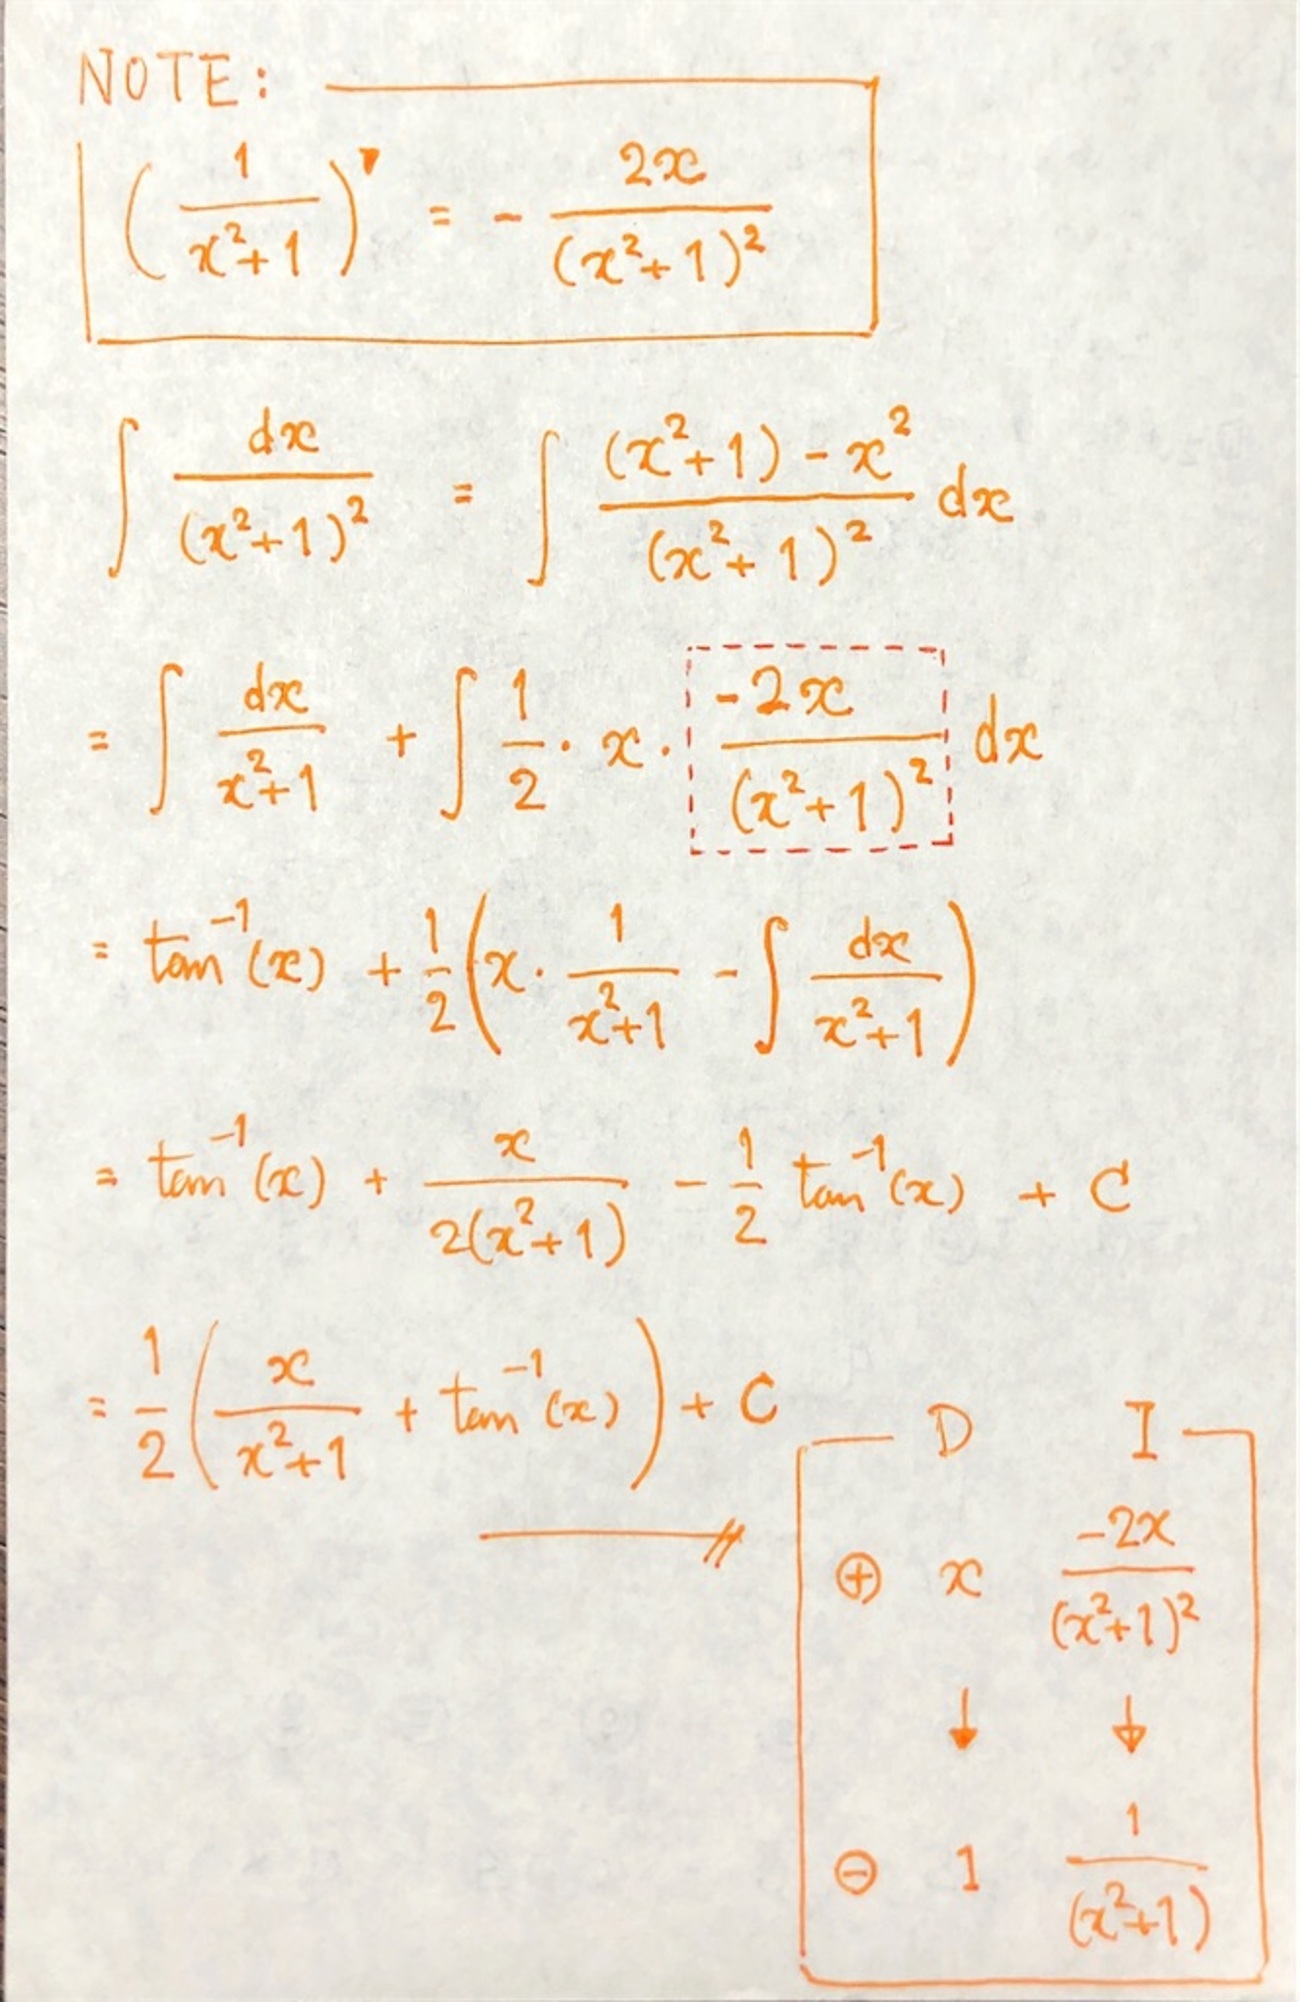 NOTE:
(1/(x²+1))' = - 2x/(x²+1)²
∫ dx/(x²+1)² = ∫ ((x²+1) - x²)/(x²+1)² dx
= ∫ dx/(x²+1) + ∫ 1/2 · x · -2x/(x²+1)² dx
= tan⁻¹(x) + 1/2 (x · 1/(x²+1) - ∫ dx/(x²+1))
= tan⁻¹(x) + x/(2(x²+1)) - 1/2 tan⁻¹(x) + C
= 1/2 (x/(x²+1) + tan⁻¹(x)) + C
D I
⊕ x -2x/(x²+1)²
↓ ↓
⊖ 1 1/(x²+1)